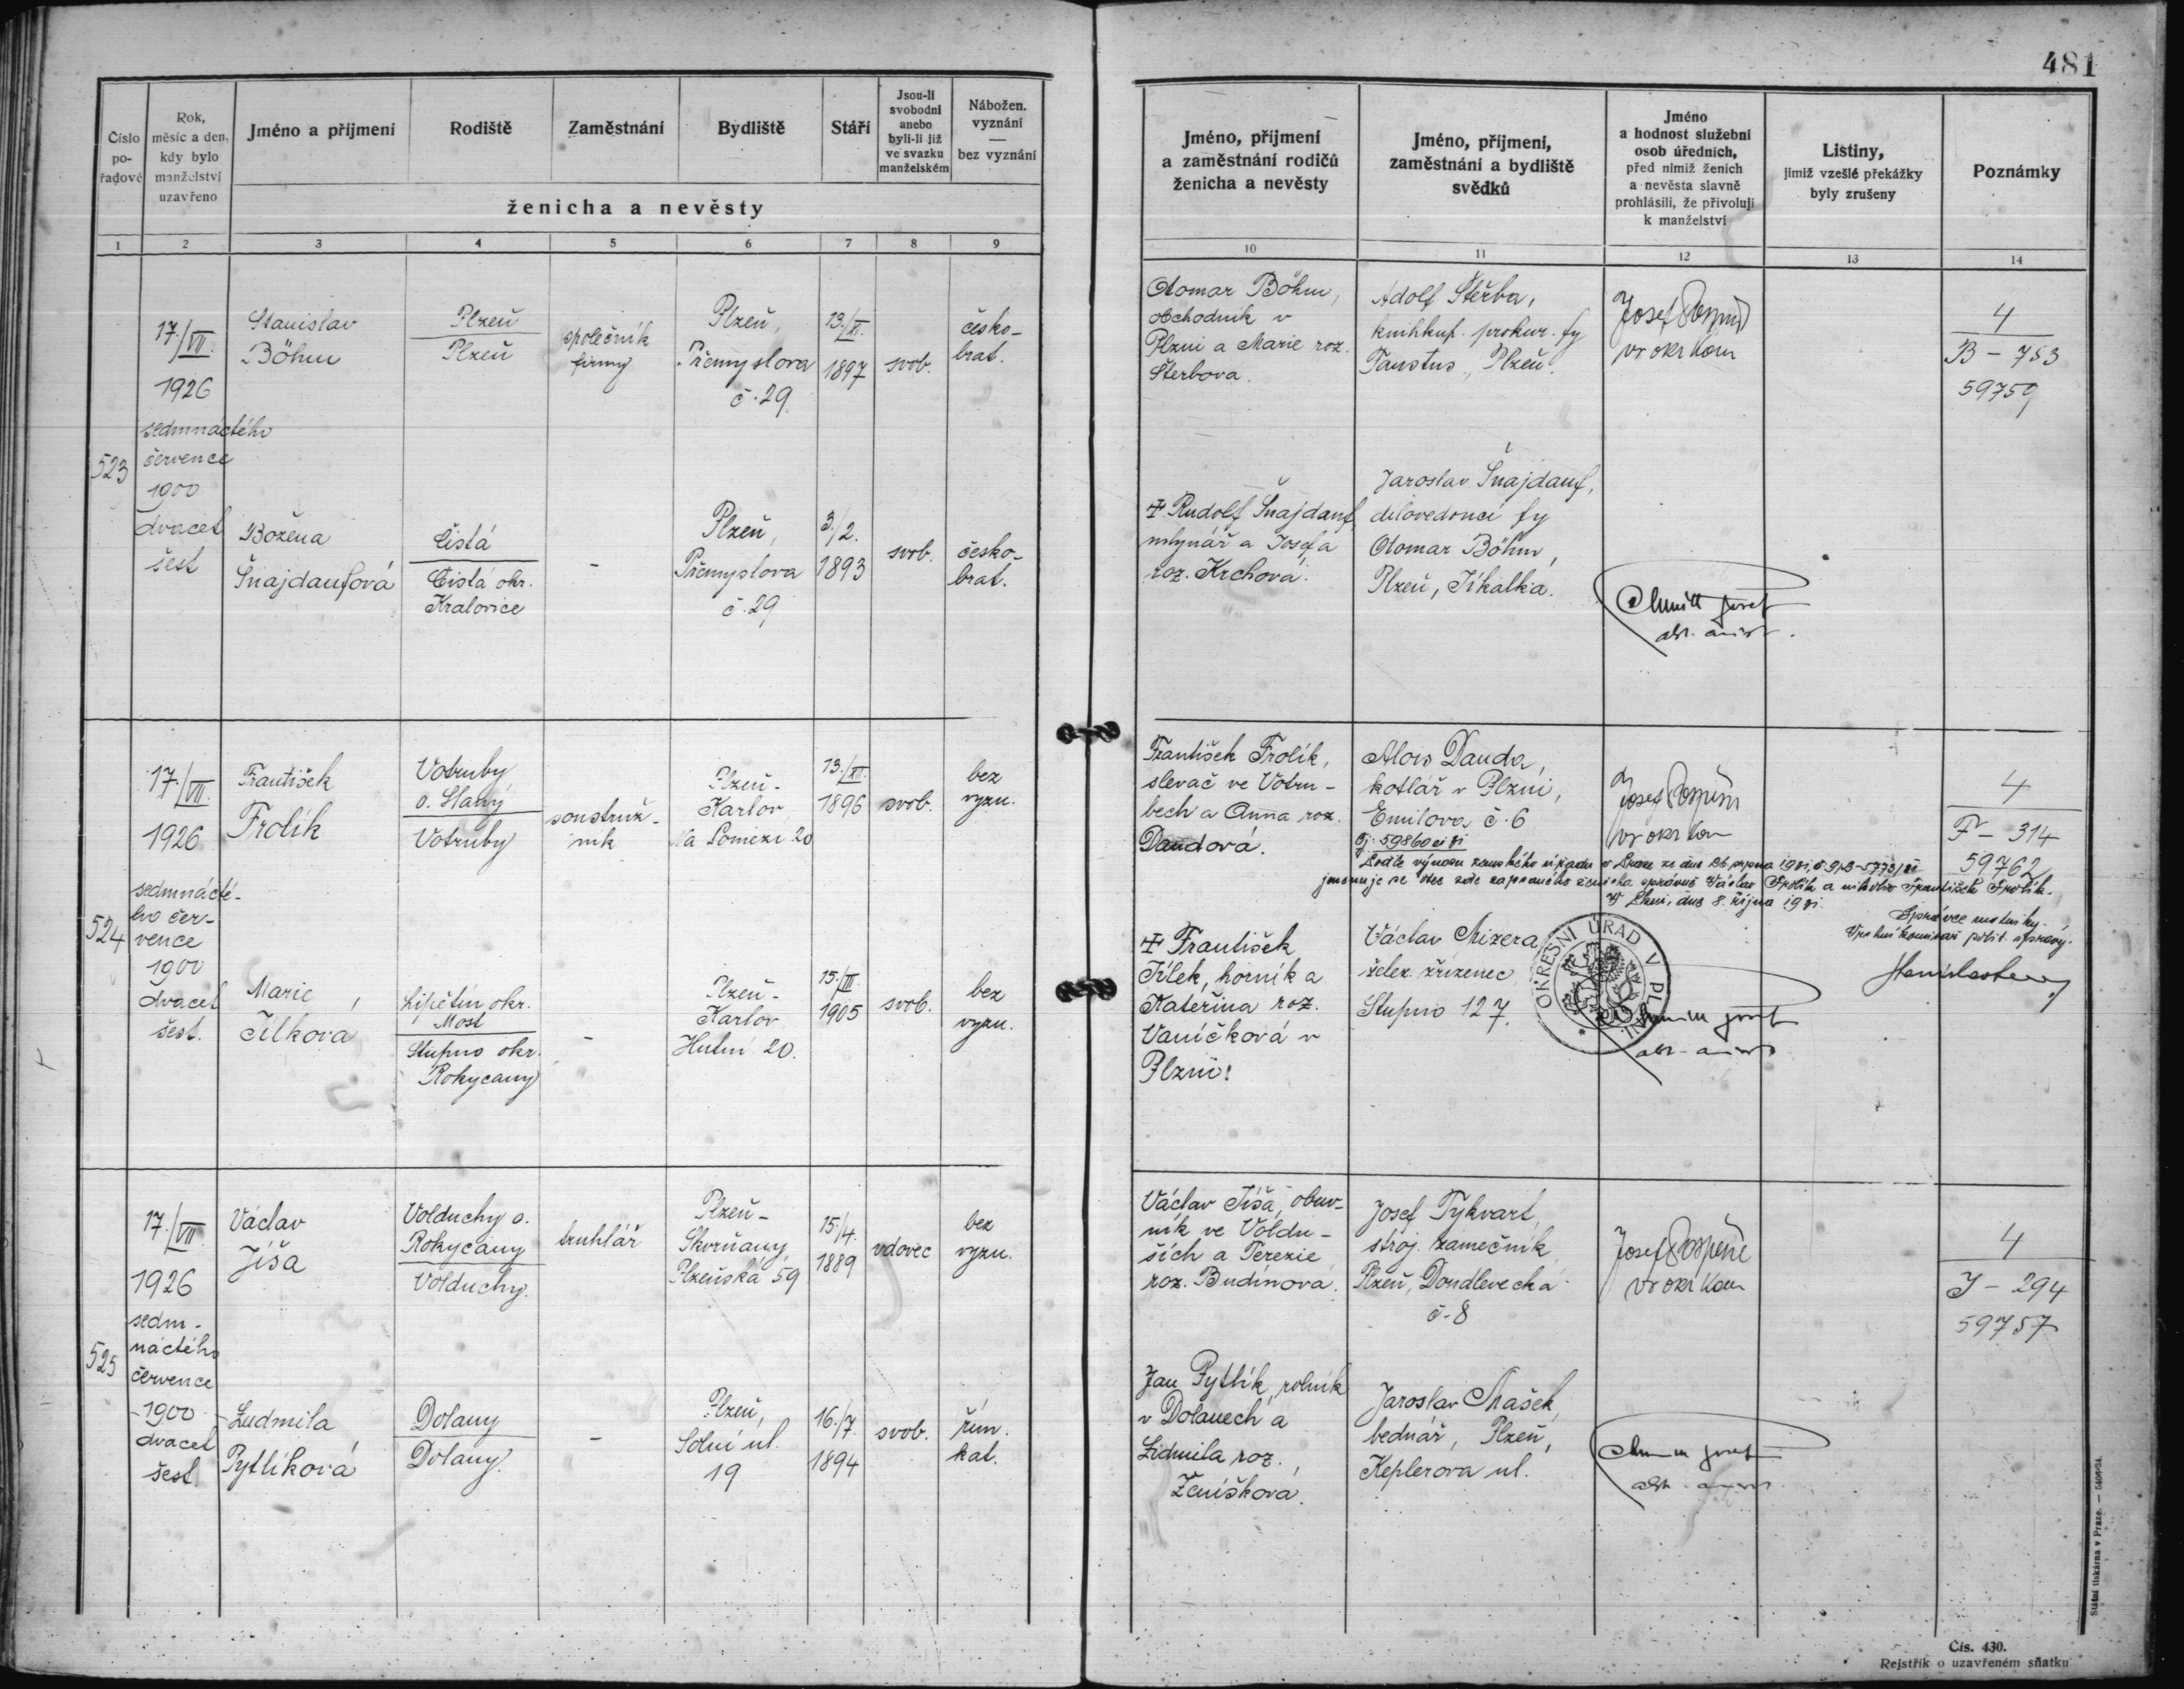 481
Číslo pořadové
Rok, měsíc a den, kdy bylo manželství uzavřeno
Jméno a příjmení
Rodiště
Zaměstnání
Bydliště
Stáří
Jsou-li svobodni anebo byli-li již ve svazku manželském
Nábožen. vyznání — bez vyznání
ženicha a nevěsty
Jméno, příjmení a zaměstnání rodičů ženicha a nevěsty
Jméno, příjmení, zaměstnání a bydliště svědků
Jméno a hodnost služební osob úředních, před nimiž ženich a nevěsta slavně prohlásili, že přivolují k manželství
Listiny, jimiž vzešlé překážky byly zrušeny
Poznámky
1 2 3 4 5 6 7 8 9 10 11 12 13 14
523
17./VII.
1926
sedmnáctého
července
1900
dvacet
šest
Stanislav
Böhm
Plzeň
Plzeň
společník
firmy
Plzeň,
Přemyslova
č. 29
13./XI.
1897
svob.
česko-
brat.
Otomar Böhm,
obchodník v
Plzni a Marie roz.
Štěrbova.
Adolf Štěrba,
knihkup. prokur. fy
Faustus, Plzeň.
Josef
vr okr kom
4
B - 753
59759
Božena
Šnajdaufová
Čistá
Čistá okr.
Kralovice
-
Plzeň,
Přemyslova
č. 29
3./2.
1893
svob.
česko-
brat.
Rudolf Šnajdauf,
mlynář a Josefa
roz. Krchová.
Jaroslav Šnajdauf,
dílovedoucí fy
Otomar Böhm,
Plzeň, Jíkalka.
524
17./VII.
1926
sedmnácté-
ho čer-
vence
1900
dvacet
šest.
František
Frolík
Votruby
o. Slaný
Votruby
soustruž-
ník
Plzeň-
Karlov
Na Pomezí 20
13./XII.
1896
svob.
bez
vyzn.
František Frolík,
slevač ve Votru-
bech a Anna roz.
Daudová.
Alois Dauda,
kotlář v Plzni,
Emilova č. 6
Josef
vr okr kom
4
F - 314
59762
Čj. 59860
Podle výnosu zemského úřadu v Praze ze dne
jmenuje se otec zde zapsaného ženicha správně Václav Frolík a nikoliv František Frolík.
V Plzni, dne 8. října
Správce matriky.
Vrchní komisař polit. správy.
OKRESNÍ ÚŘAD V PLZNI
Marie
Jílková
Lipětín okr.
Most
Stupno okr.
Rokycany
-
Plzeň-
Karlov
Hutní 20.
15./III.
1905
svob.
bez
vyzn.
František
Jílek, horník a
Kateřina roz.
Vaníčková v
Plzni.
Václav Mizera
želez. zřízenec
Stupno 127.
525
17./VII.
1926
sedm-
náctého
července
1900
dvacet
šest
Václav
Jíša
Volduchy o.
Rokycany
Volduchy.
truhlář
Plzeň-
Skvrňany,
Plzeňská 59
15./4.
1889
vdovec
bez
vyzn.
Václav Jíša, obuv-
ník ve Voldu-
ších a Terezie
roz. Budínova.
Josef Tykvart,
stroj. zámečník
Plzeň, Doudlevecká
č. 8
Josef
vr okr kom
4
J - 294
59757
Ludmila
Pytlíková
Dolany
Dolany.
-
Plzeň,
Solní ul.
19
16./7.
1894
svob.
řím.
kat.
Jan Pytlík, rolník
v Dolanech a
Lidmila roz.
Ženíšková.
Jaroslav Mašek,
bednář, Plzeň,
Keplerova ul.
Státní tiskárna v Praze.
Čís. 430.
Rejstřík o uzavřeném sňatku